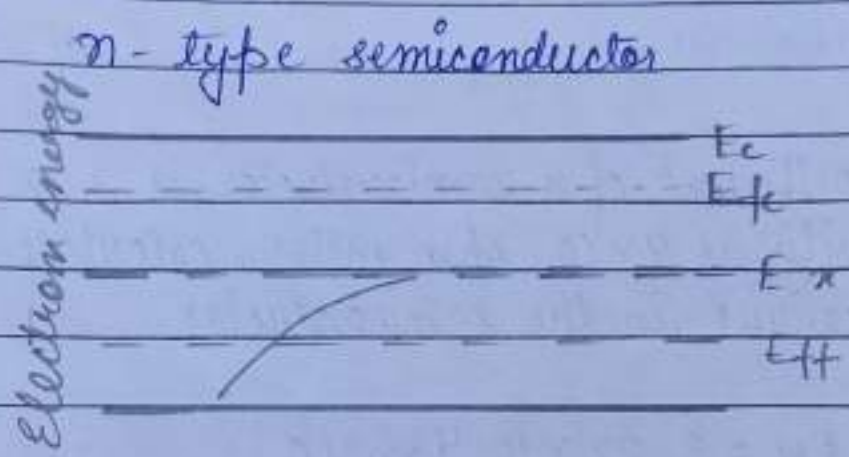 n- type semiconductor
Electron energy
Ec
Efc
E x
Eff